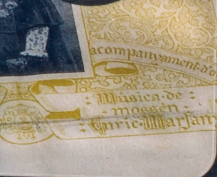 acompanyament de
Musica de
mossen
Enric Marfany